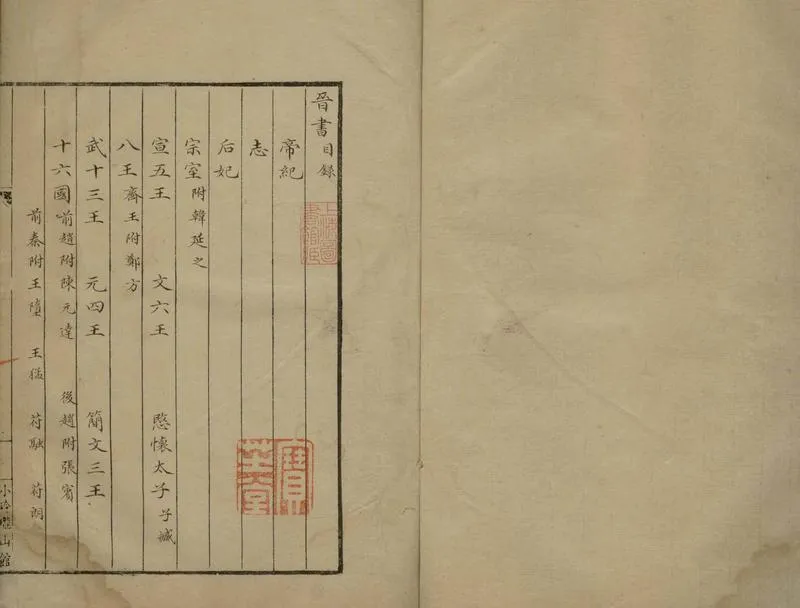 晉書目錄
帝紀
志
后妃
宗室附韓延之
宣五王 文六王 愍懷太子子臧
八王齊王附鄭方
武十三王 元四王 簡文三王
十六國前趙附陳元達 後趙附張賓
前秦附王墮 王猛 苻融 苻朗
小玲瓏山館
上海圖書館臧